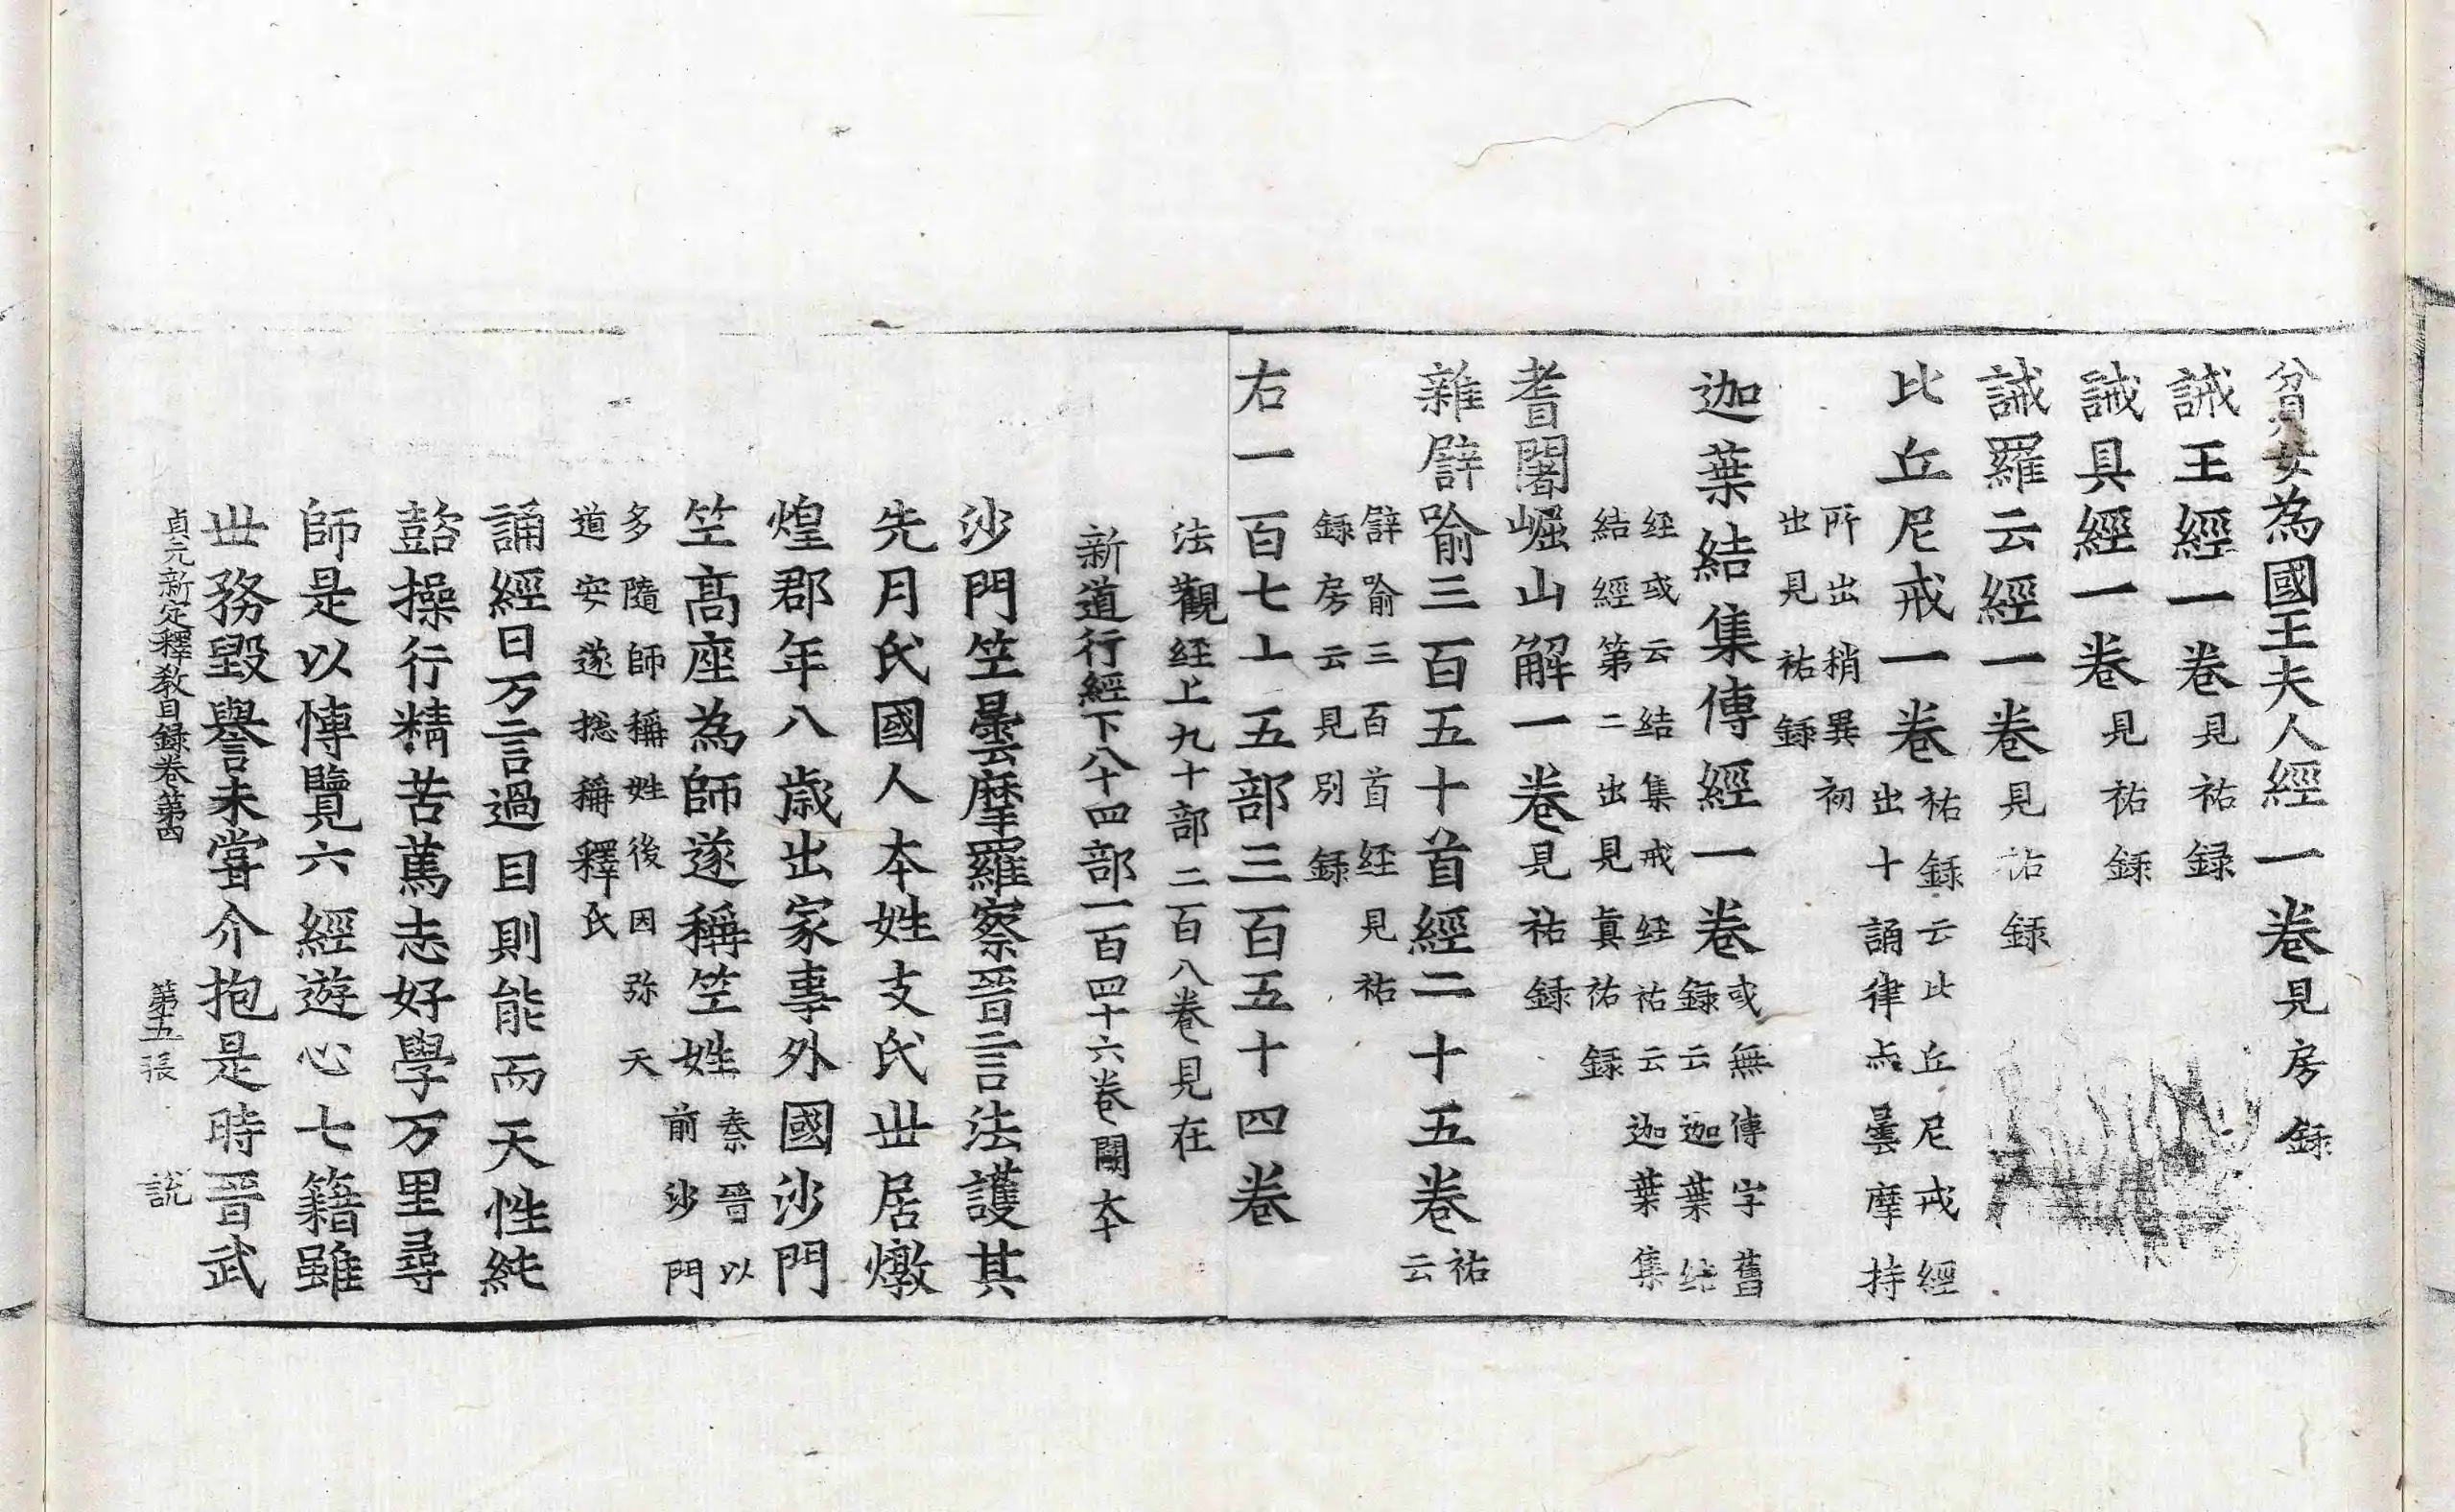 貧女為國王夫人經一卷見房録
誡王經一卷見祐録
誡具經一卷見祐録
誡羅云經一卷見祐録
比丘尼戒一卷祐録云比丘尼戒經
出十誦律亦曇摩持
所出稍異初
出見祐録
迦葉結集傳經一卷或無傳字舊
録云迦葉結
經或云結集戒經祐云迦葉集
結經第二出見真祐録
耆闍崛山解一卷見祐録
雜譬喻三百五十首經二十五卷祐
云
譬喻三百首経見祐
録房云見別録
右一百七十五部三百五十四卷
法觀経上九十部二百八卷見在
新道行經下八十四部一百四十六卷闕本
沙門竺曇摩羅察晉言法護其
先月氏國人本姓支氏世居燉
煌郡年八歲出家事外國沙門
竺髙座為師遂稱竺姓秦晉以
前沙門
多隨師稱姓後因弥天
道安遂揔稱釋氏
誦經日万言過目則能而天性純
懿操行精苦篤志好學万里尋
師是以博覽六經遊心七籍雖
世務毀譽未嘗介抱是時晉武
貞元新定釋教目録卷第四 第五張 說